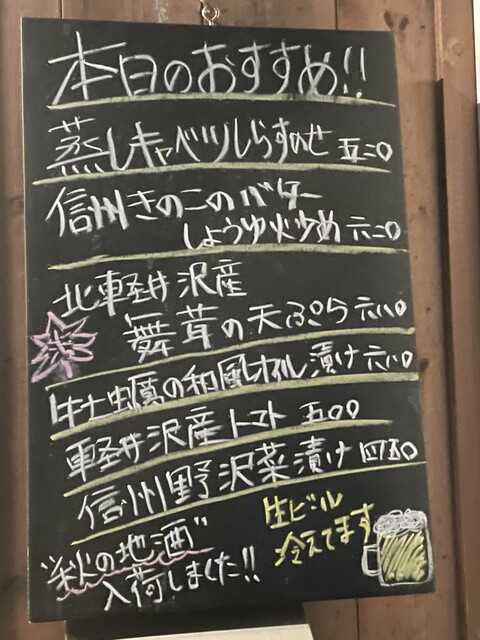 本日のおすすめ!!
蒸しキャベツしらすのせ 五二〇
信州きのこのバター
しょうゆ炒め 六二〇
北軽井沢産
舞茸の天ぷら 六八〇
牡蠣の和風オイル漬け 六八〇
軽井沢産トマト 五〇〇
信州野沢菜漬け 四五〇
"秋の地酒"
入荷しました!!
生ビール
冷えてます